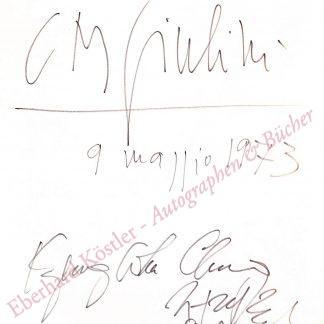 CM Giulini
9 maggio 1973
Kyung Wha Chung
Eberhard Köstler - Autographen & Bücher